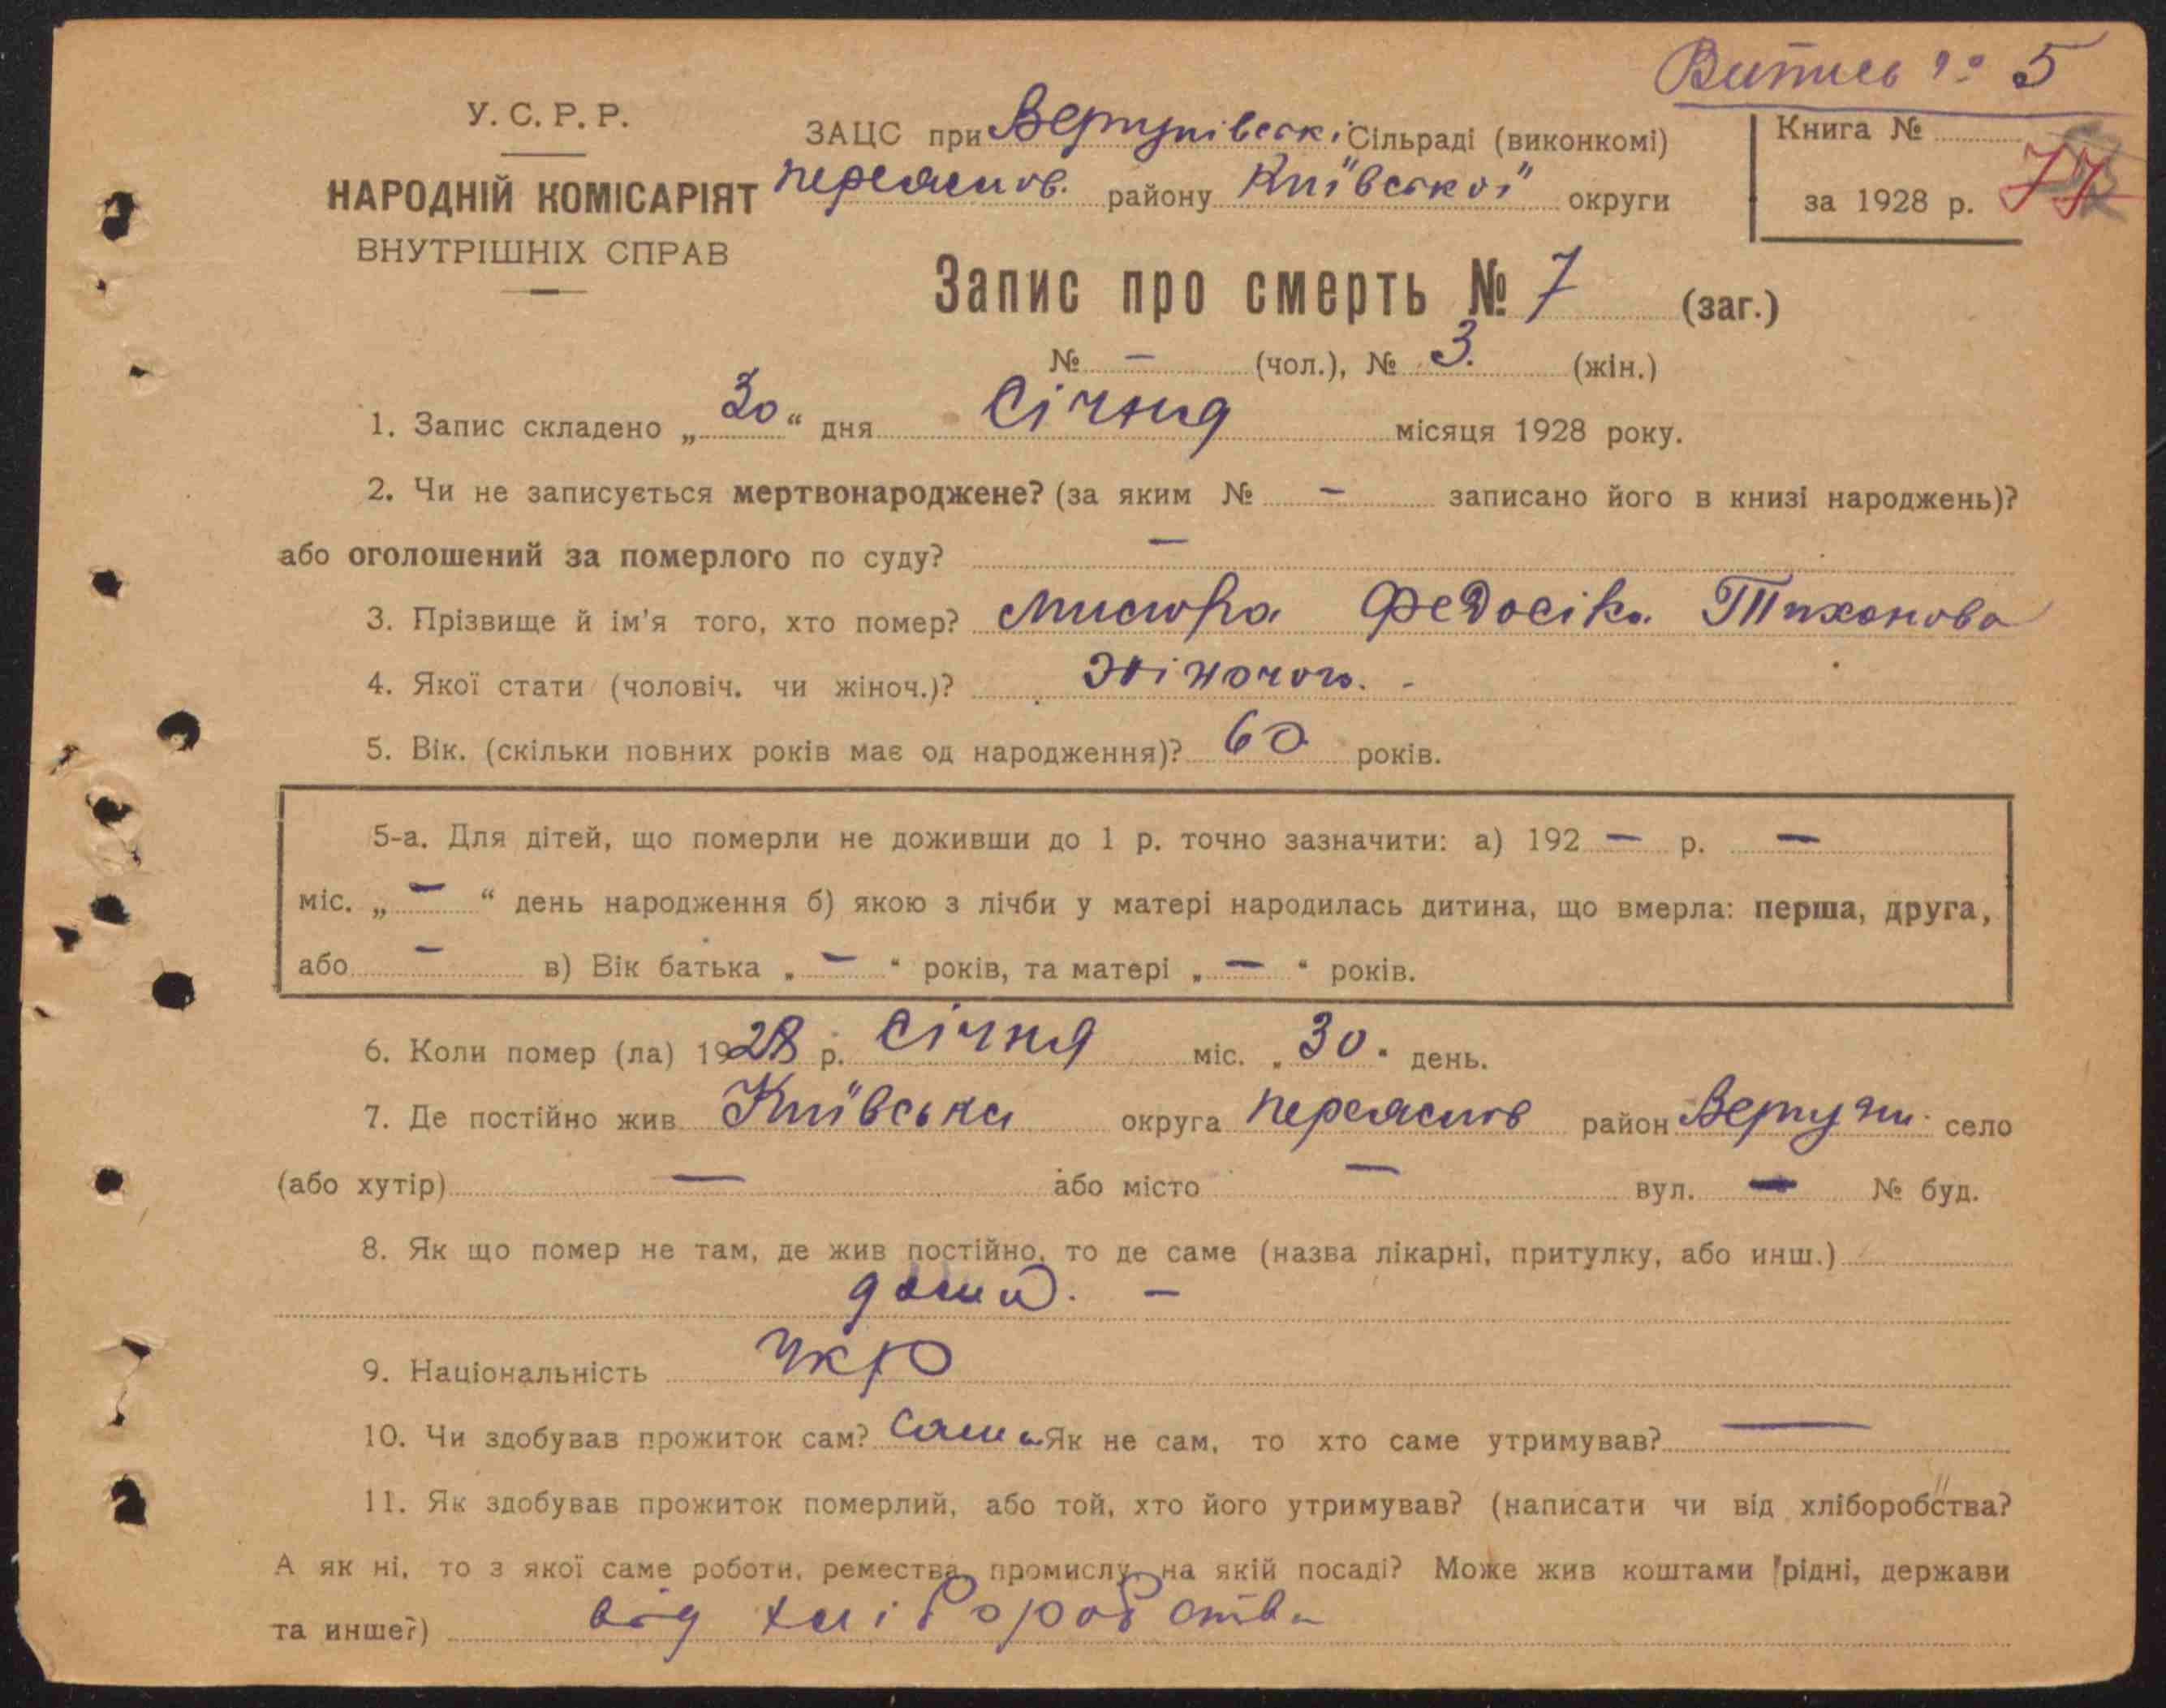 Витись № 5
У. С. Р. Р.
НАРОДНІЙ КОМІСАРІЯТ
ВНУТРІШНІХ СПРАВ
ЗАЦС при Вергунівські Сільраді (виконкомі)
переяслов. району Київської округи
Книга №
за 1928 р. 77
Запис про смерть № 7 (заг.)
№ — (чол.), № 3. (жін.)
1. Запис складено „30“ дня Січня місяця 1928 року.
2. Чи не записується мертвонароджене? (за яким № — записано його в книзі народжень)?
або оголошений за померлого по суду? —
3. Прізвище й ім'я того, хто помер? Мисюра Федосіка Тихонова
4. Якої стати (чоловіч. чи жіноч.)? Жіночого. -
5. Вік. (скільки повних років має од народження)? 60 років.
5-а. Для дітей, що померли не доживши до 1 р. точно зазначити: а) 192 — р. —
міс. „—“ день народження б) якою з лічби у матері народилась дитина, що вмерла: перша, друга,
або — в) Вік батька „—“ років, та матері „—“ років.
6. Коли помер (ла) 1928 р. Січня міс. „30“ день.
7. Де постійно жив Київська округа переяслов район Вергуни село
(або хутір) — або місто — вул. — № буд.
8. Як що помер не там, де жив постійно, то де саме (назва лікарні, притулку, або инш.)
дома. —
9. Національність Укр
10. Чи здобував прожиток сам? Сама Як не сам, то хто саме утримував? —
11. Як здобував прожиток померлий, або той, хто його утримував? (написати чи від хліборобства?
А як ні, то з якої саме роботи, ремества, промислу, на якій посаді? Може жив коштами рідні, держави
та иншеї) від хліборобства